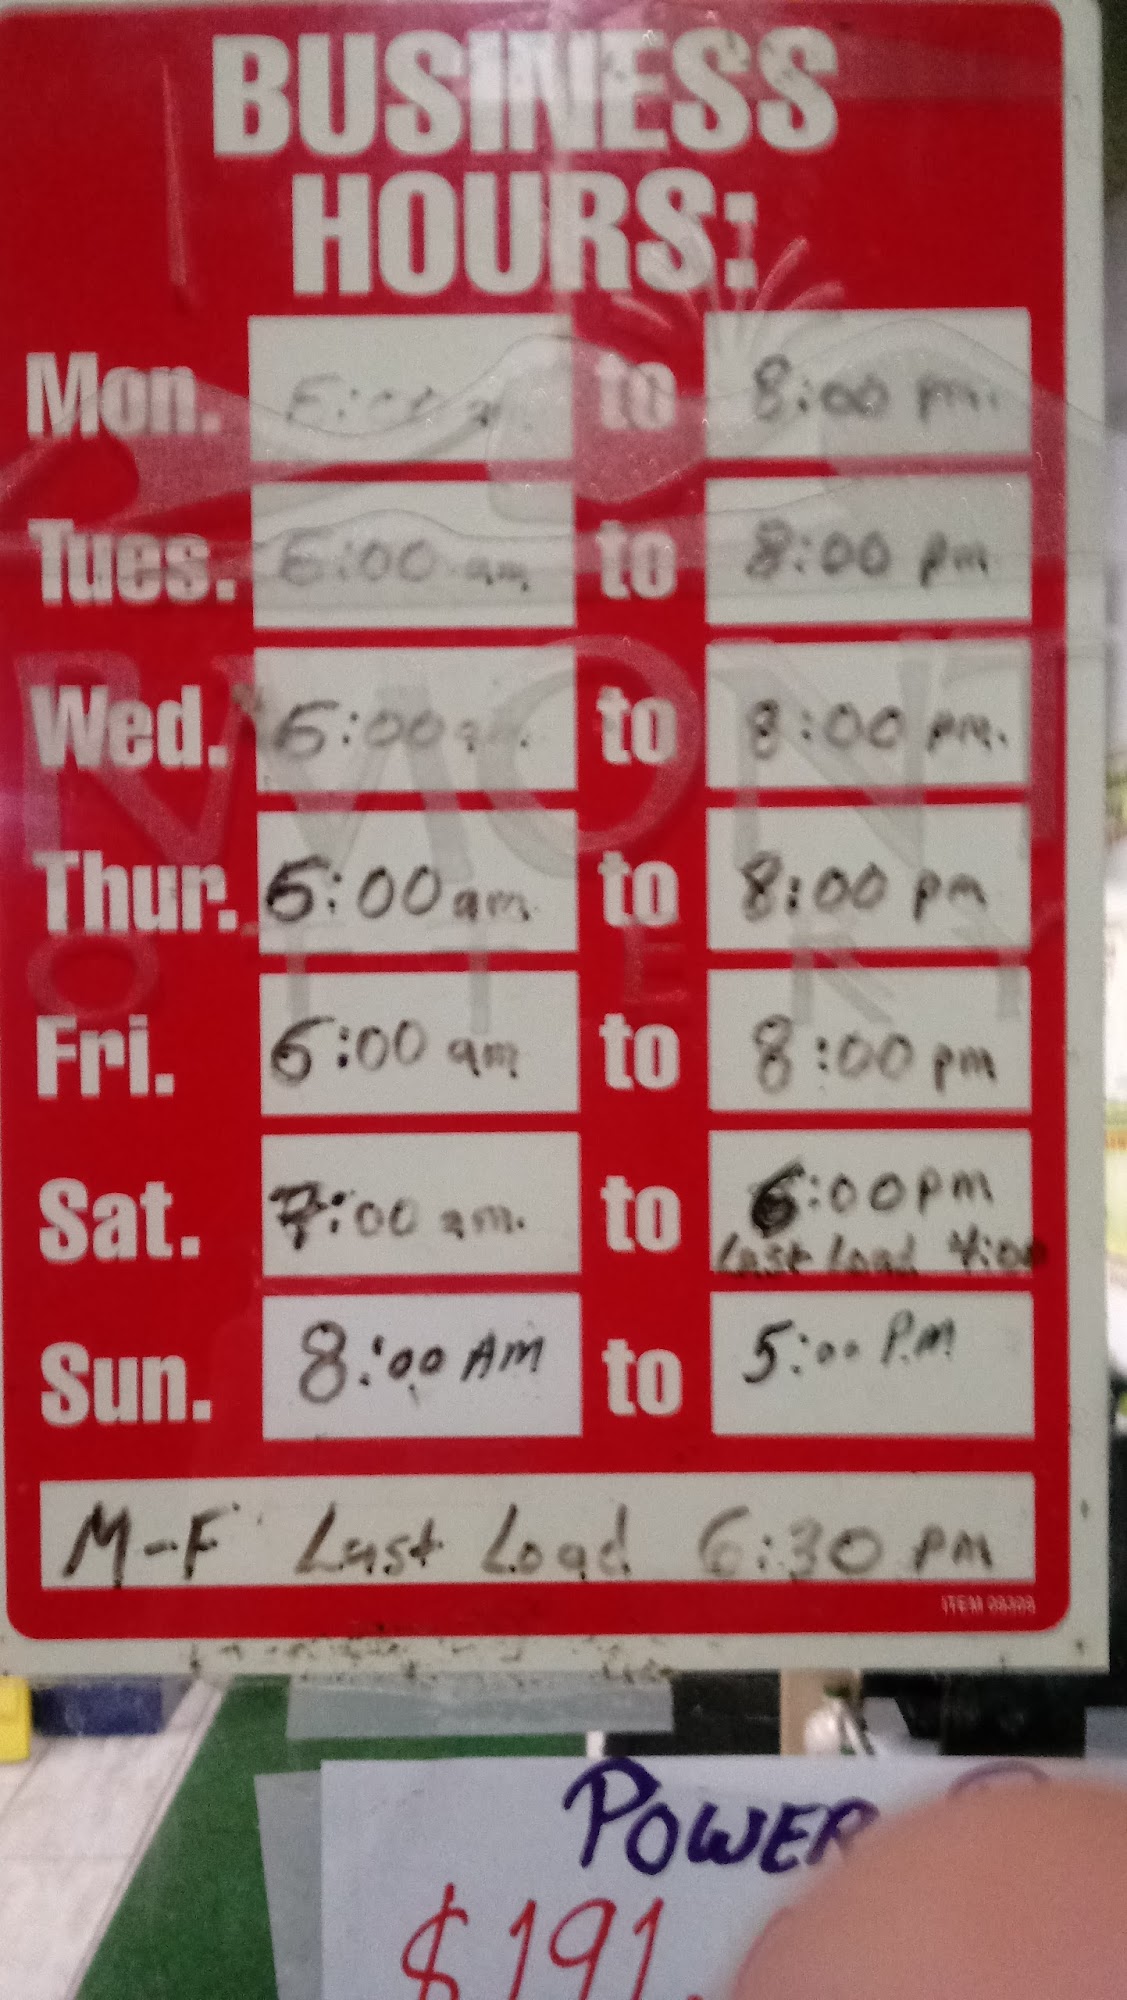 BUSINESS
HOURS:
Mon. to 8:00 pm.
Tues. 6:00 am to 8:00 pm
Wed. 6:00 am. to 8:00 pm.
Thur. 6:00 am. to 8:00 pm
Fri. 6:00 am to 8:00 pm
Sat. 7:00 am. to 6:00 pm
Last Load 4:00
Sun. 8:00 AM to 5:00 P.M
M-F Last Load 6:30 pm
POWER
$191.